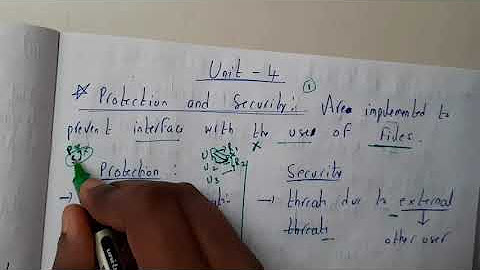 Unit - 4
①
* Protection and Security: Are implemented to
prevent interface with the use of Files.
Protection : Security
→ → threats due to external
threats ↓
other user
U R1
U2 R2
U3